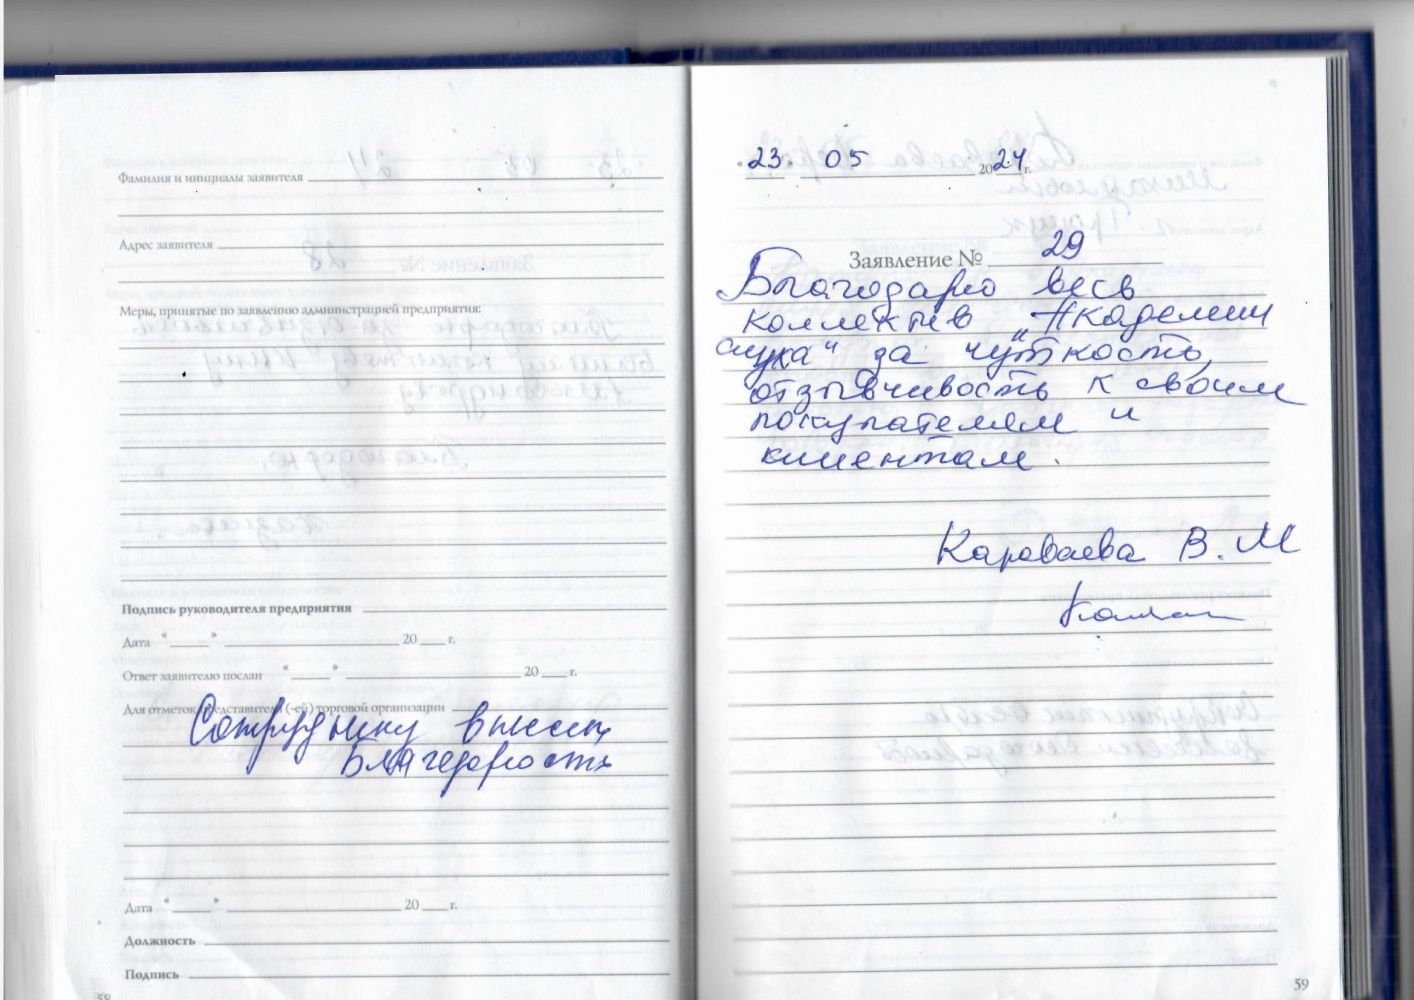 Фамилия и инициалы заявителя
Адрес заявителя
Меры, принятые по заявлению администрацией предприятия:
Подпись руководителя предприятия
Дата « » 20 г.
Ответ заявителю послан « » 20 г.
Для отметок представителя (-ей) торговой организации
Сотруднику вынести
благодарность
Дата « » 20 г.
Должность
Подпись
58
«23» 05 2024 г.
Заявление № 29
Благодарю весь
коллектив „Академии
слуха“ за чуткость,
отзывчивость к своим
покупателям и
клиентам.
Караваева В. М
59